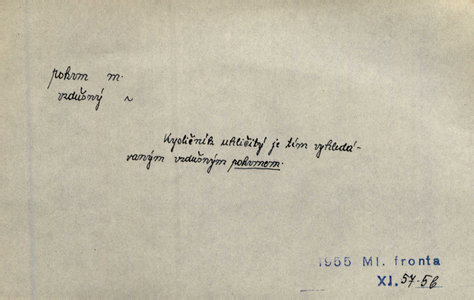 pokrm m.
vzdušný ~
Kysličník uhličitý je tím vyhledá-
vaným vzdušným pokrmem.
1955 Ml. fronta
XI. 57-56